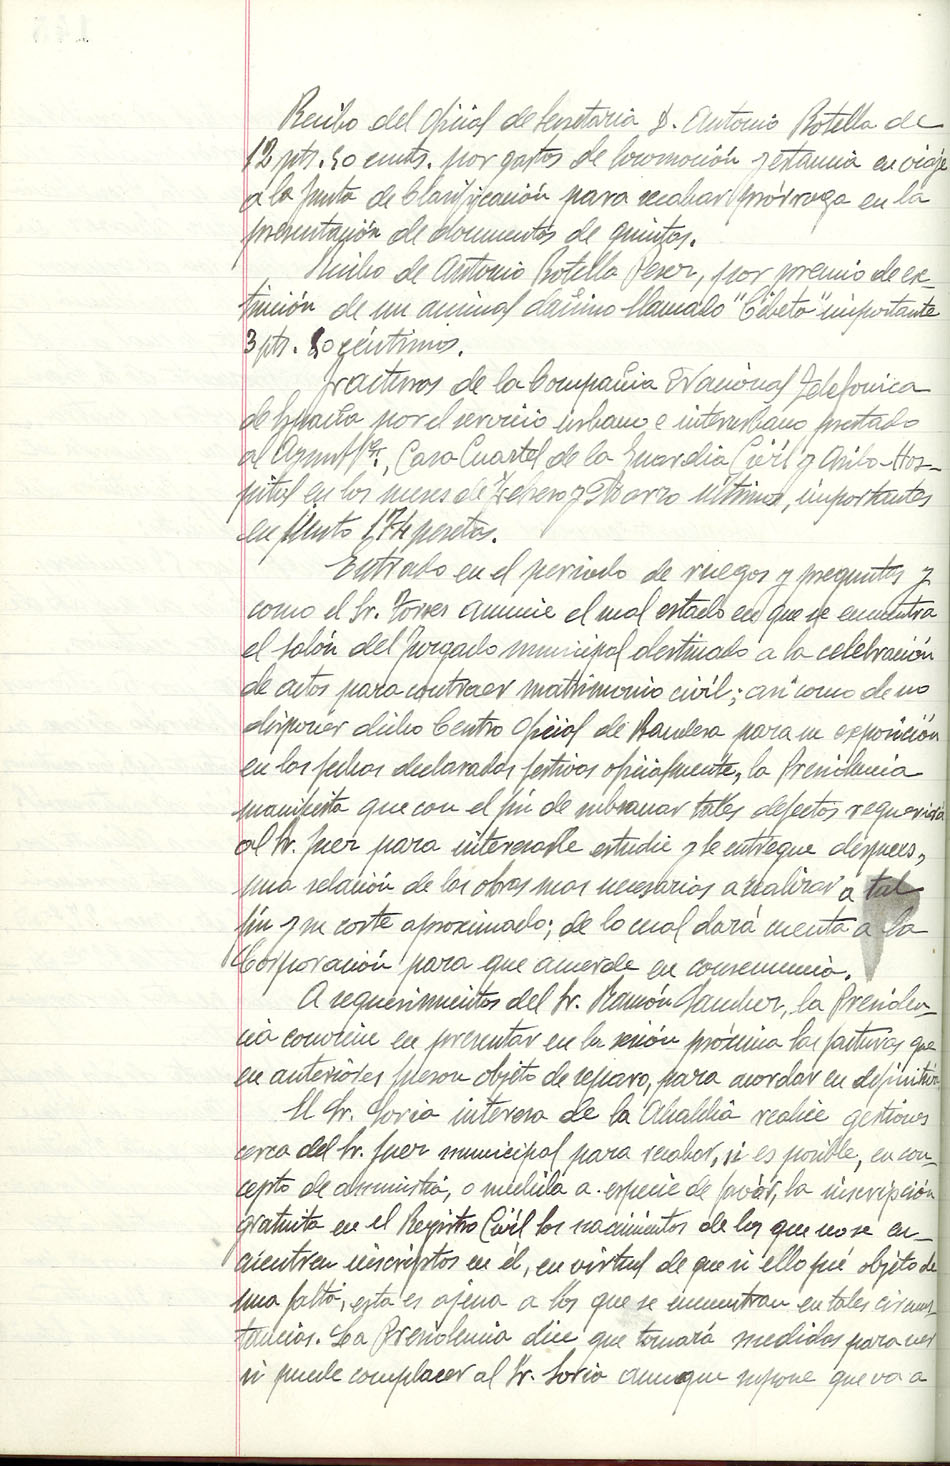 Recibo del Oficial de Secretaria D. Antonio Botella de
12 pts. 50 cnts. por gastos de locomoción y estancia en viaje
a la Junta de Clasificación para recabar prórroga en la
presentación de documentos de quintos.
Recibo de Antonio Botella Perer, por premio de ex-
tinción de un animal dañino llamado "Gibeto" importante
3 pts. 50 céntimos.
Facturas de la Compañia Nacional Telefónica
de España por el servicio urbano e interurbano prestado
al Ayuntº., Casa Cuartel de la Guardia Civil y Asilo-Hos-
pital en los meses de Febrero y Marzo último, importantes
en junto 174 pesetas.
Entrado en el periodo de ruegos y preguntas y
como el Sr. Torres anuncie el mal estado en que se encuentra
el salón del Juzgado municipal destinado a la celebración
de actos para contraer matrimonio civil; así como de no
disponer dicho Centro Oficial de Bandera para su exposición
en las fechas declaradas festivas oficialmente, la Presidencia
manifiesta que con el fin de subsanar tales defectos requerirá
al Sr. Juez para interesarle estudie y le entregue después,
una relación de las obras mas necesarias a realizar a tal
fin y su coste aproximado; de lo cual dará cuenta a la
Corporación para que acuerde en consecuencia.
A requerimientos del Sr. Ramón Sanchez, la Presiden-
cia conviene en presentar en la sesión próxima las facturas que
en anteriores fueron objeto de reparo, para acordar en definitiva.
El Sr. Soria interesa de la Alcaldia realice gestiones
cerca del Sr. Juez municipal para recabar, si es posible, en con-
cepto de amnistía, o medida a especie de favór, la inscripción
gratuita en el Registro Civil los nacimientos de los que no se en-
cuentren inscriptos en él, en virtud de que si ello fué objeto de
una falta, esta es ajena a los que se encuentran en tales circuns-
tancias. La Presidencia dice que tomará medidas para ver
si puede complacer al Sr. Soria aunque supone que va a